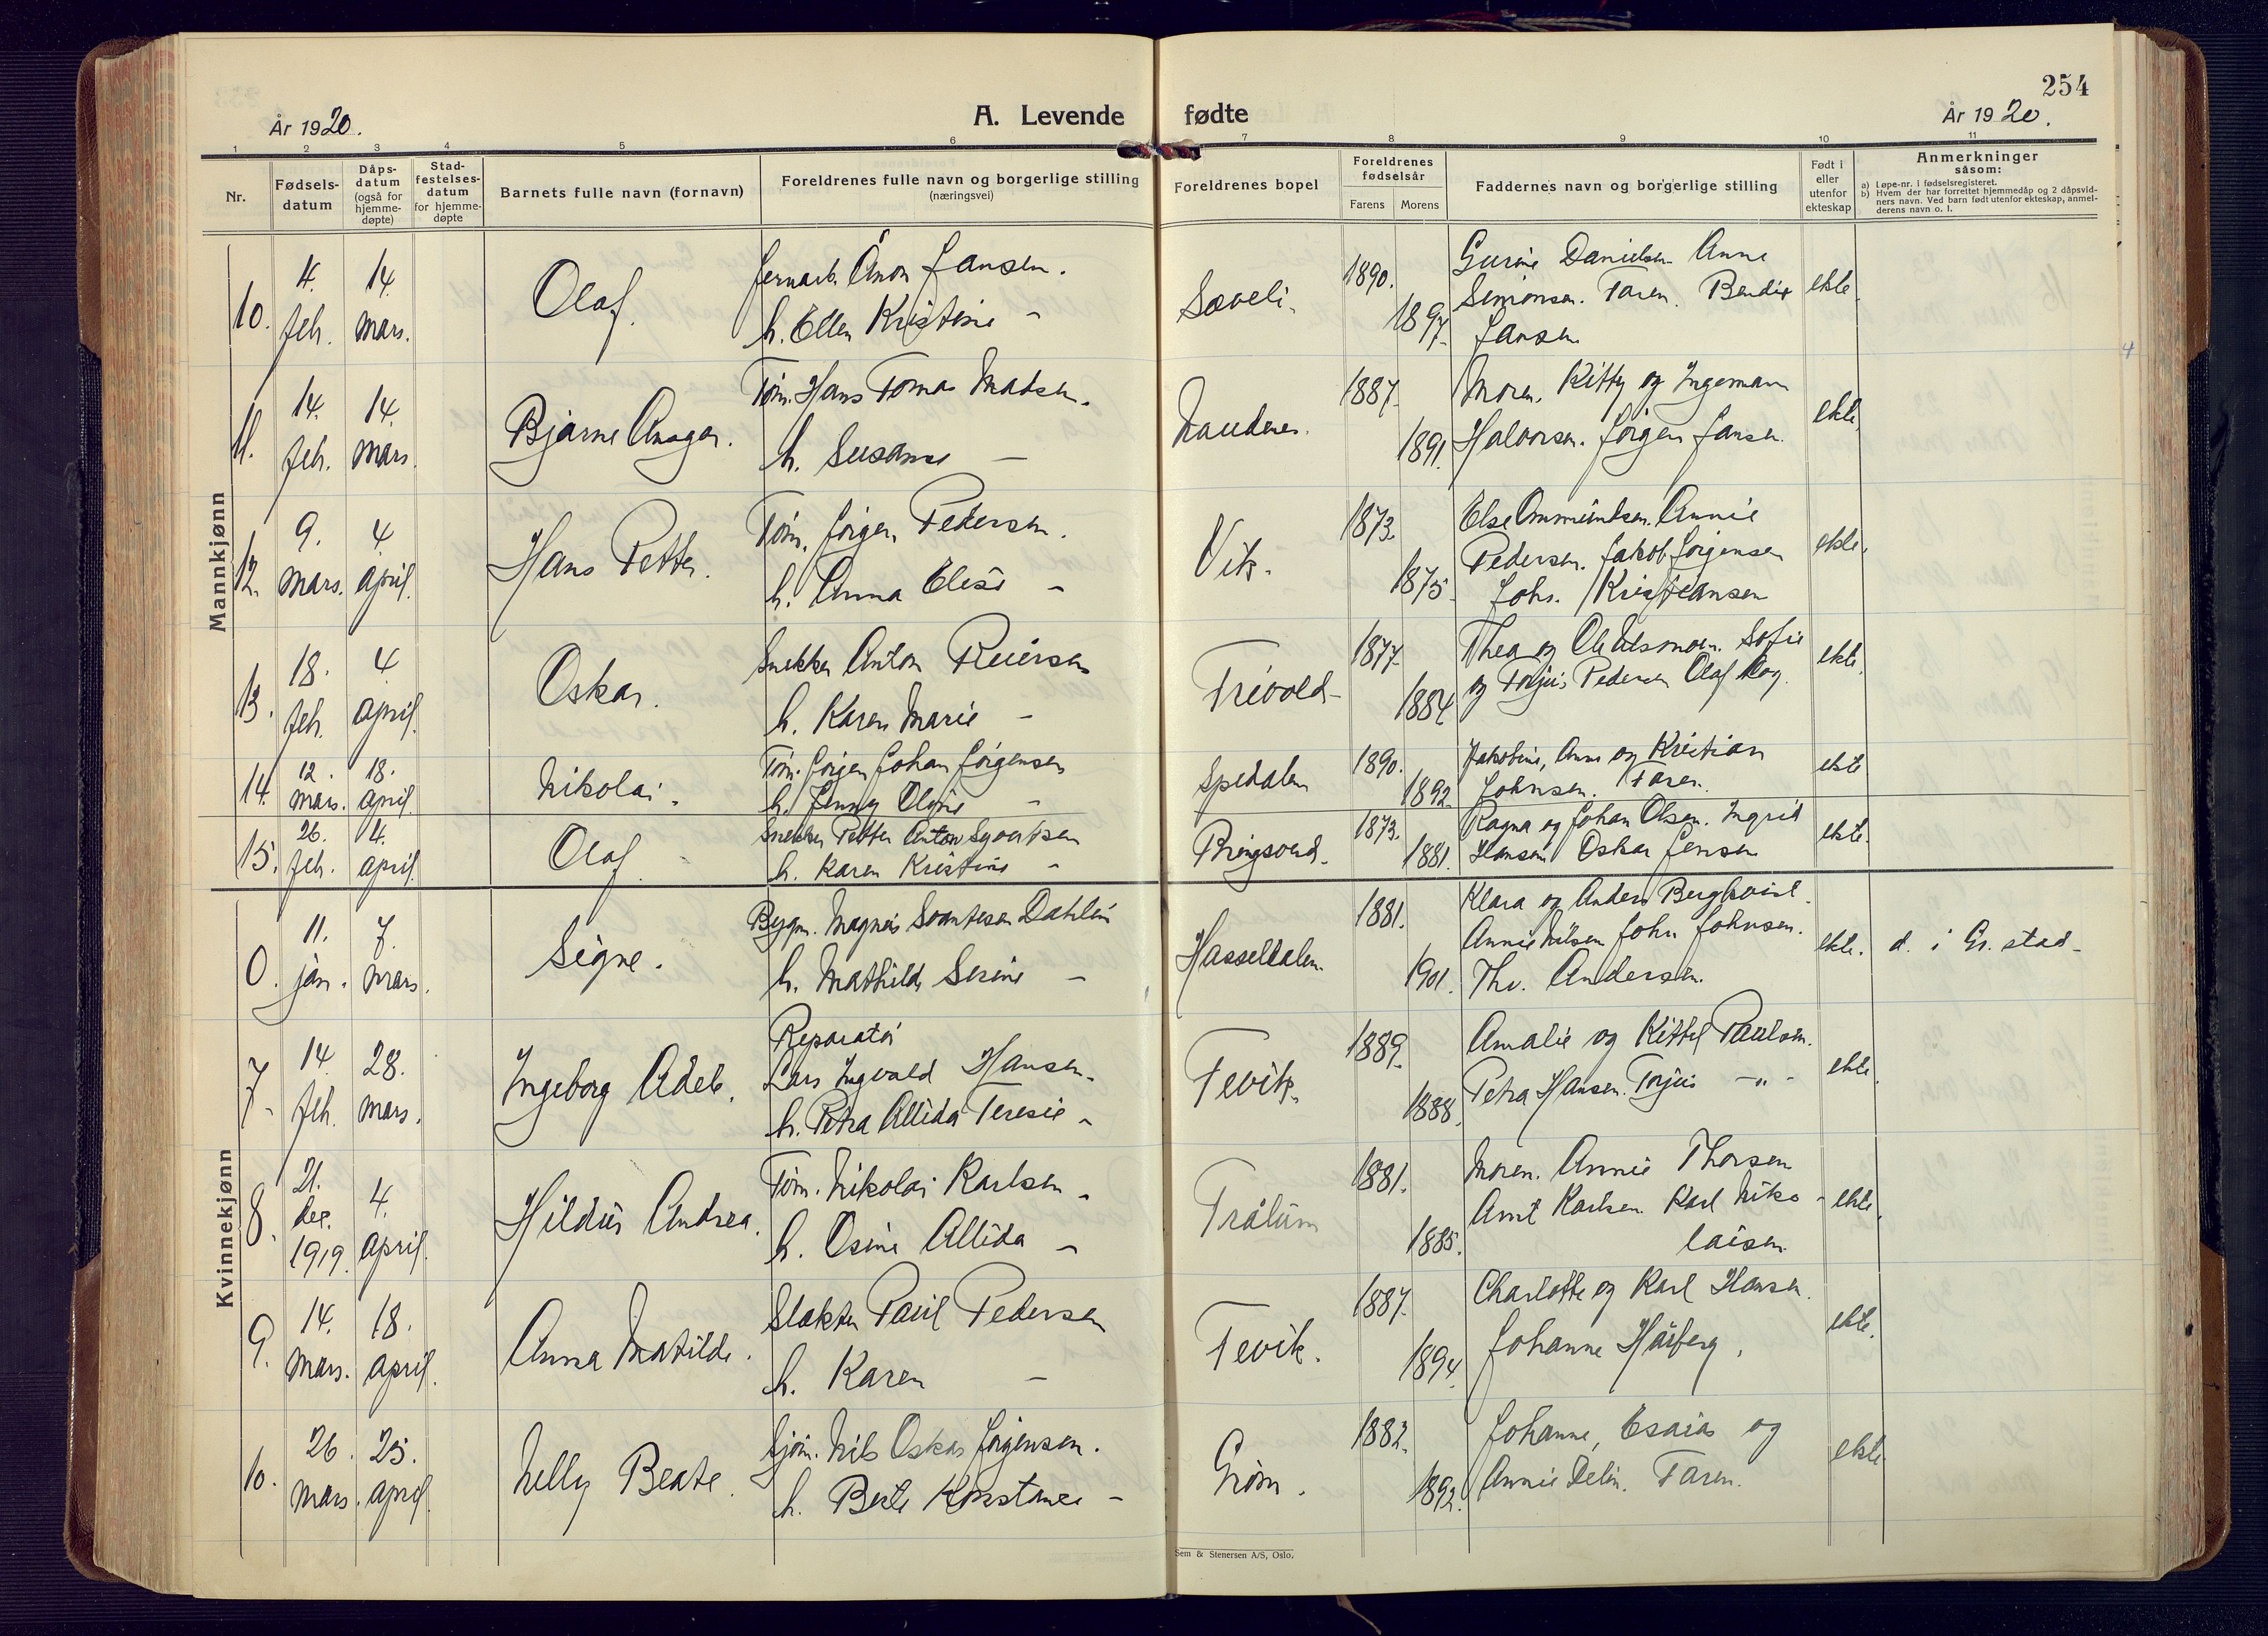 254
År 1920.
A. Levende fødte
År 1920.
1 2 3 4 5 6 7 8 9 10 11
Nr.
Fødsels-
datum
Dåps-
datum
(også for
hjemme-
døpte)
Stad-
festelses-
datum
for hjemme-
døpte
Barnets fulle navn (fornavn)
Foreldrenes fulle navn og borgerlige stilling
(næringsvei)
Foreldrenes bopel
Foreldrenes
fødselsår
Farens Morens
Faddernes navn og borgerlige stilling
Født i
eller
utenfor
ekteskap
Anmerkninger
såsom:
a) Løpe-nr. i fødselsregisteret.
b) Hvem der har forrettet hjemmedåp og 2 dåpsvid-
ners navn. Ved barn født utenfor ekteskap, anmel-
derens navn o. l.
Mannkjønn
10. 4. feb. 14. mars. Olaf.
Jernarb. Anon Jansen.
h. Ellen Kristine -
Sæveli. 1890. 1897.
Gurine Danielsen Anne
Simonsen. Faren. Bendix
Jansen
ekte.
11. 14. feb. 14. mars. Bjarne Ansgar.
Tøm. Hans Tomas Madsen.
h. Susanne -
1887. 1891.
Moren. Kitty og Ingemann
Halvorsen. Jørgen Jansen.
ekte.
12. 9. mars. 4. april. Hans Petter.
Tøm. Jørgen Pedersen.
h. Anna Elise -
Vik. 1873. 1875.
Else Ommundsen. Annie
Pedersen. Jakob Jørgensen
Johs. Kristiansen
ekte.
13. 18. feb. 4. april. Oskar.
Snekker Anton Reiersen
h. Karen Marie -
Trevold- 1877. 1884
Thea og Ole Sofie
og Torjus Pedersen Olaf
ekte.
14. 12. mars. 18. april. Nikolai.
Tøm. Jørgen Johan Jørgensen
h. Jenny Oline -
Spedalen 1890. 1892.
Jakobine, Anna og Kristian
Johnsen. Faren.
ekte
15. 26. feb. 4. april. Olaf.
Snekker Petter Anton Syvertsen
h. Karen Kristine -
Bringsverd. 1873. 1881.
Ragna og Johan Olsen. Ingrid
Hansen Oskar Jensen
ekte.
Kvinnekjønn
0. 11. jan. 7. mars. Signe.
Bygm. Magnus Svantesen Dahlin
h. Mathilde Serine -
Hasseldalen. 1881. 1901.
Klara og Anders Bergkvist.
Annie Nilsen John Johnsen.
Thv. Andersen.
ekte. d. i Gr. stad-
7. 14. feb. 28. mars. Ingeborg Adele.
Reparatør
Lars Ingvald Hansen.
h. Petra Allida Teresie -
Fevik. 1889. 1888.
Amalie og Kittel Paulsen.
Petra Hansen. Torjus -"-
ekte.
8. 21. des. 1919. 4. april. Hildur Andrea.
Tøm. Nikolai Karlsen.
h. Osine Allida -
Trålum 1881. 1885.
Moren. Annie Thorsen
Arnt Karlsen. Karl Niko-
laisen.
ekte.
9. 14. mars. 18. april. Anna Matilde.
Slakter Paul Pedersen
h. Karen -
Fevik. 1887. 1894.
Charlotte og Karl Hansen.
Johanne Håberg.
ekte.
10. 26. mars. 25. april. Nelly Beate.
Sjøm. Nils Oskar Jørgensen.
h. Berte Konstance -
Grøm. 1882. 1892.
Johanne, Esaias og
Annie Delin. Faren.
ekte
Sem & Stenersen A/S, Oslo.